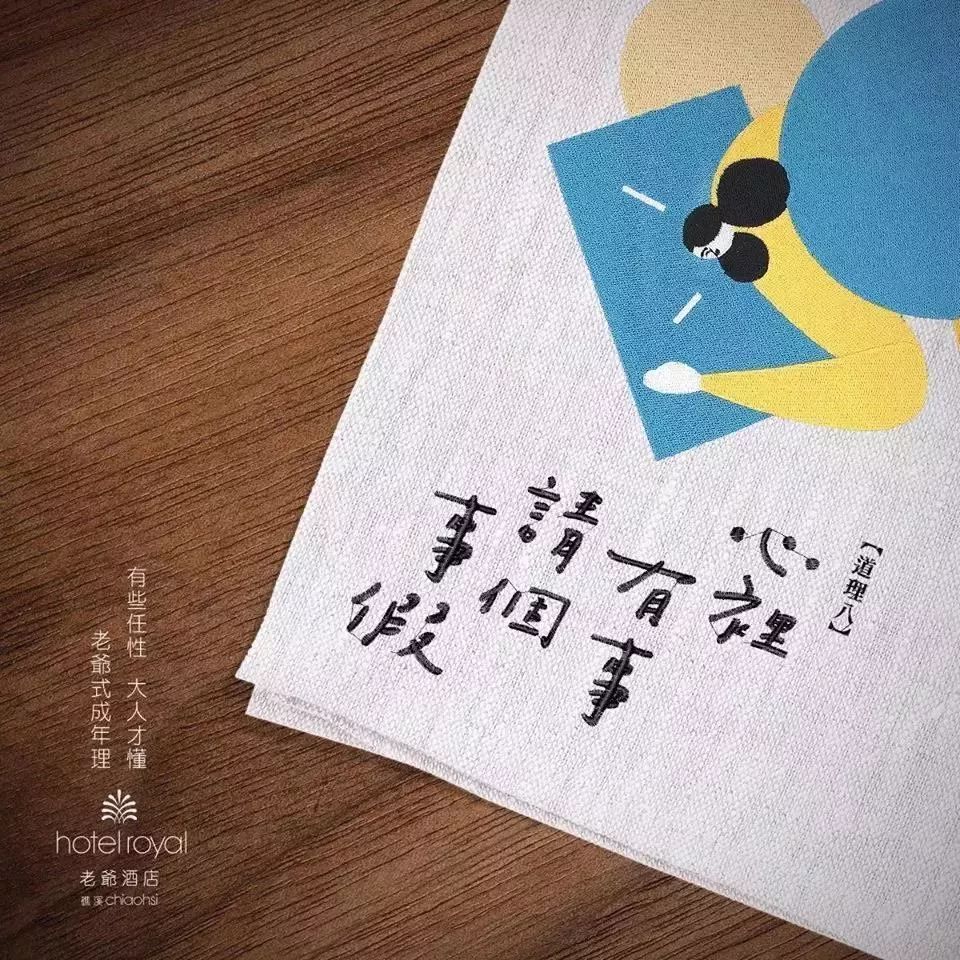 【道理八】
心裡
有事
請個
事假
有些任性 大人才懂
老爺式成年理
hotel royal
老爺酒店
礁溪 chiaohsi